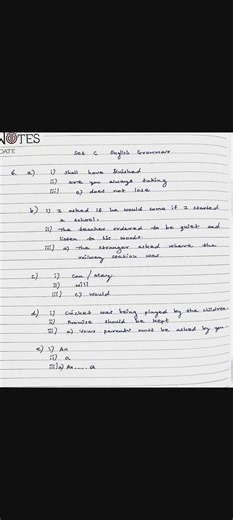 NOTES
DATE
Set C English Grammar
6. a) i) shall have finished
ii) are you always taking
iii) c) does not lose
b) i) I asked if he would come if I started
a school.
ii) The teacher ordered to be quiet and
listen to his words.
iii) a) The stranger asked where the
railway station was
c) i) Can / May
ii) will
iii) c) would
d) i) Cricket was being played by the children
ii) Promise should be kept
iii) a) Your parents must be asked by you.
e) i) An
ii) a
iii) a) An.....a